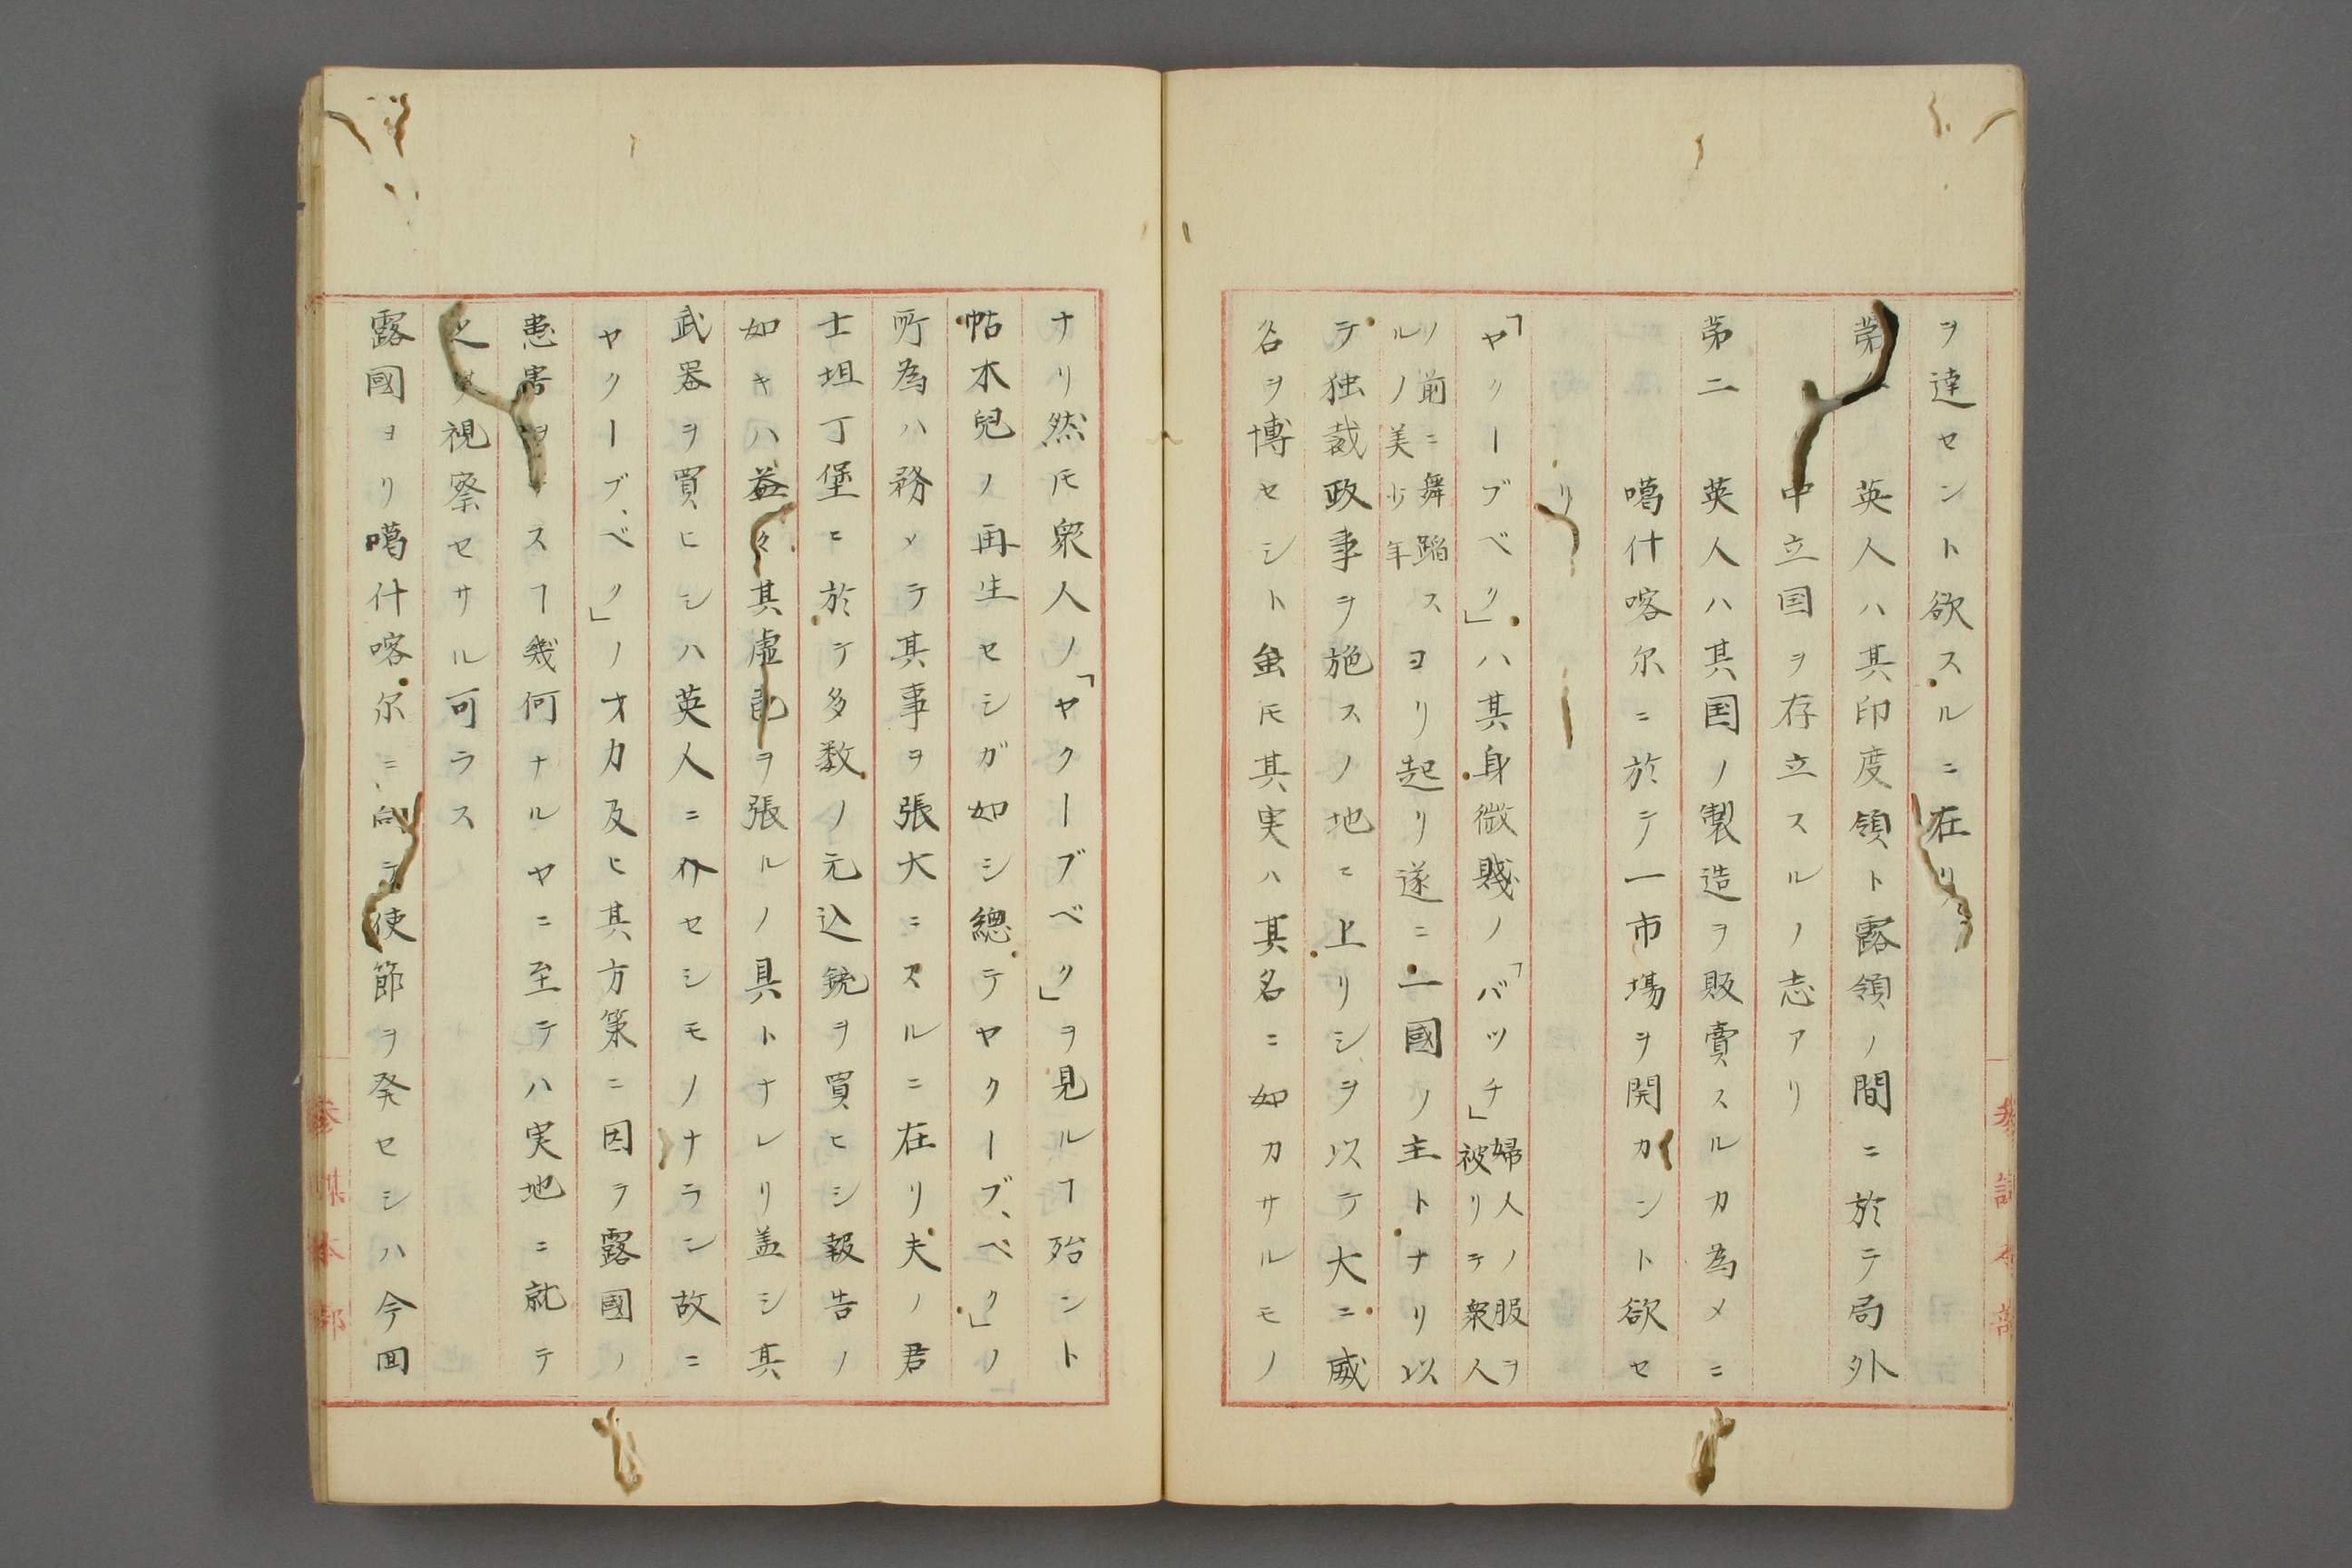 ヲ達セント欲スルニ在リ
第　英人ハ其印度領ト露領ノ間ニ於テ局外
中立国ヲ存立スルノ志アリ
第二　英人ハ其国ノ製造ヲ販賣スルカ為メニ
噶什喀尓ニ於テ一市場ヲ開カント欲セ
リ
「ヤクーブベク」ハ其身微賤ノ「バツチ」婦人ノ服ヲ被リテ衆人
ノ前ニ舞蹈スルノ美少年ヨリ起リ遂ニ一國ノ主トナリ以
テ独裁政事ヲ施スノ地ニ上リシヲ以テ大ニ威
名ヲ博セシト虽𪜈其実ハ其名ニ如カサルモノ
ナリ然𪜈衆人ノ「ヤクーブベク」ヲ見ルヿ殆ント
帖木兒ノ再生セシガ如シ總テヤクーブ、ベク」ノ
所為ハ務メテ其事ヲ張大ニスルニ在リ夫ノ君
士坦丁堡ニ於テ多数ノ元込銃ヲ買ヒシ報告ノ
如キハ益々其虚ヲ張ルノ具トナレリ盖シ其
武器ヲ買ヒシハ英人ニ介セシモノナラン故ニ
ヤクーブ、ベク」ノ才力及ヒ其方策ニ因テ露國ノ
患害ヲスヿ幾何ナルヤニ至テハ実地ニ就テ
之メ視察セサル可ラス
露國ヨリ噶什喀尓ニ向テ使節ヲ発セシハ今回
參謀本部
參謀本部